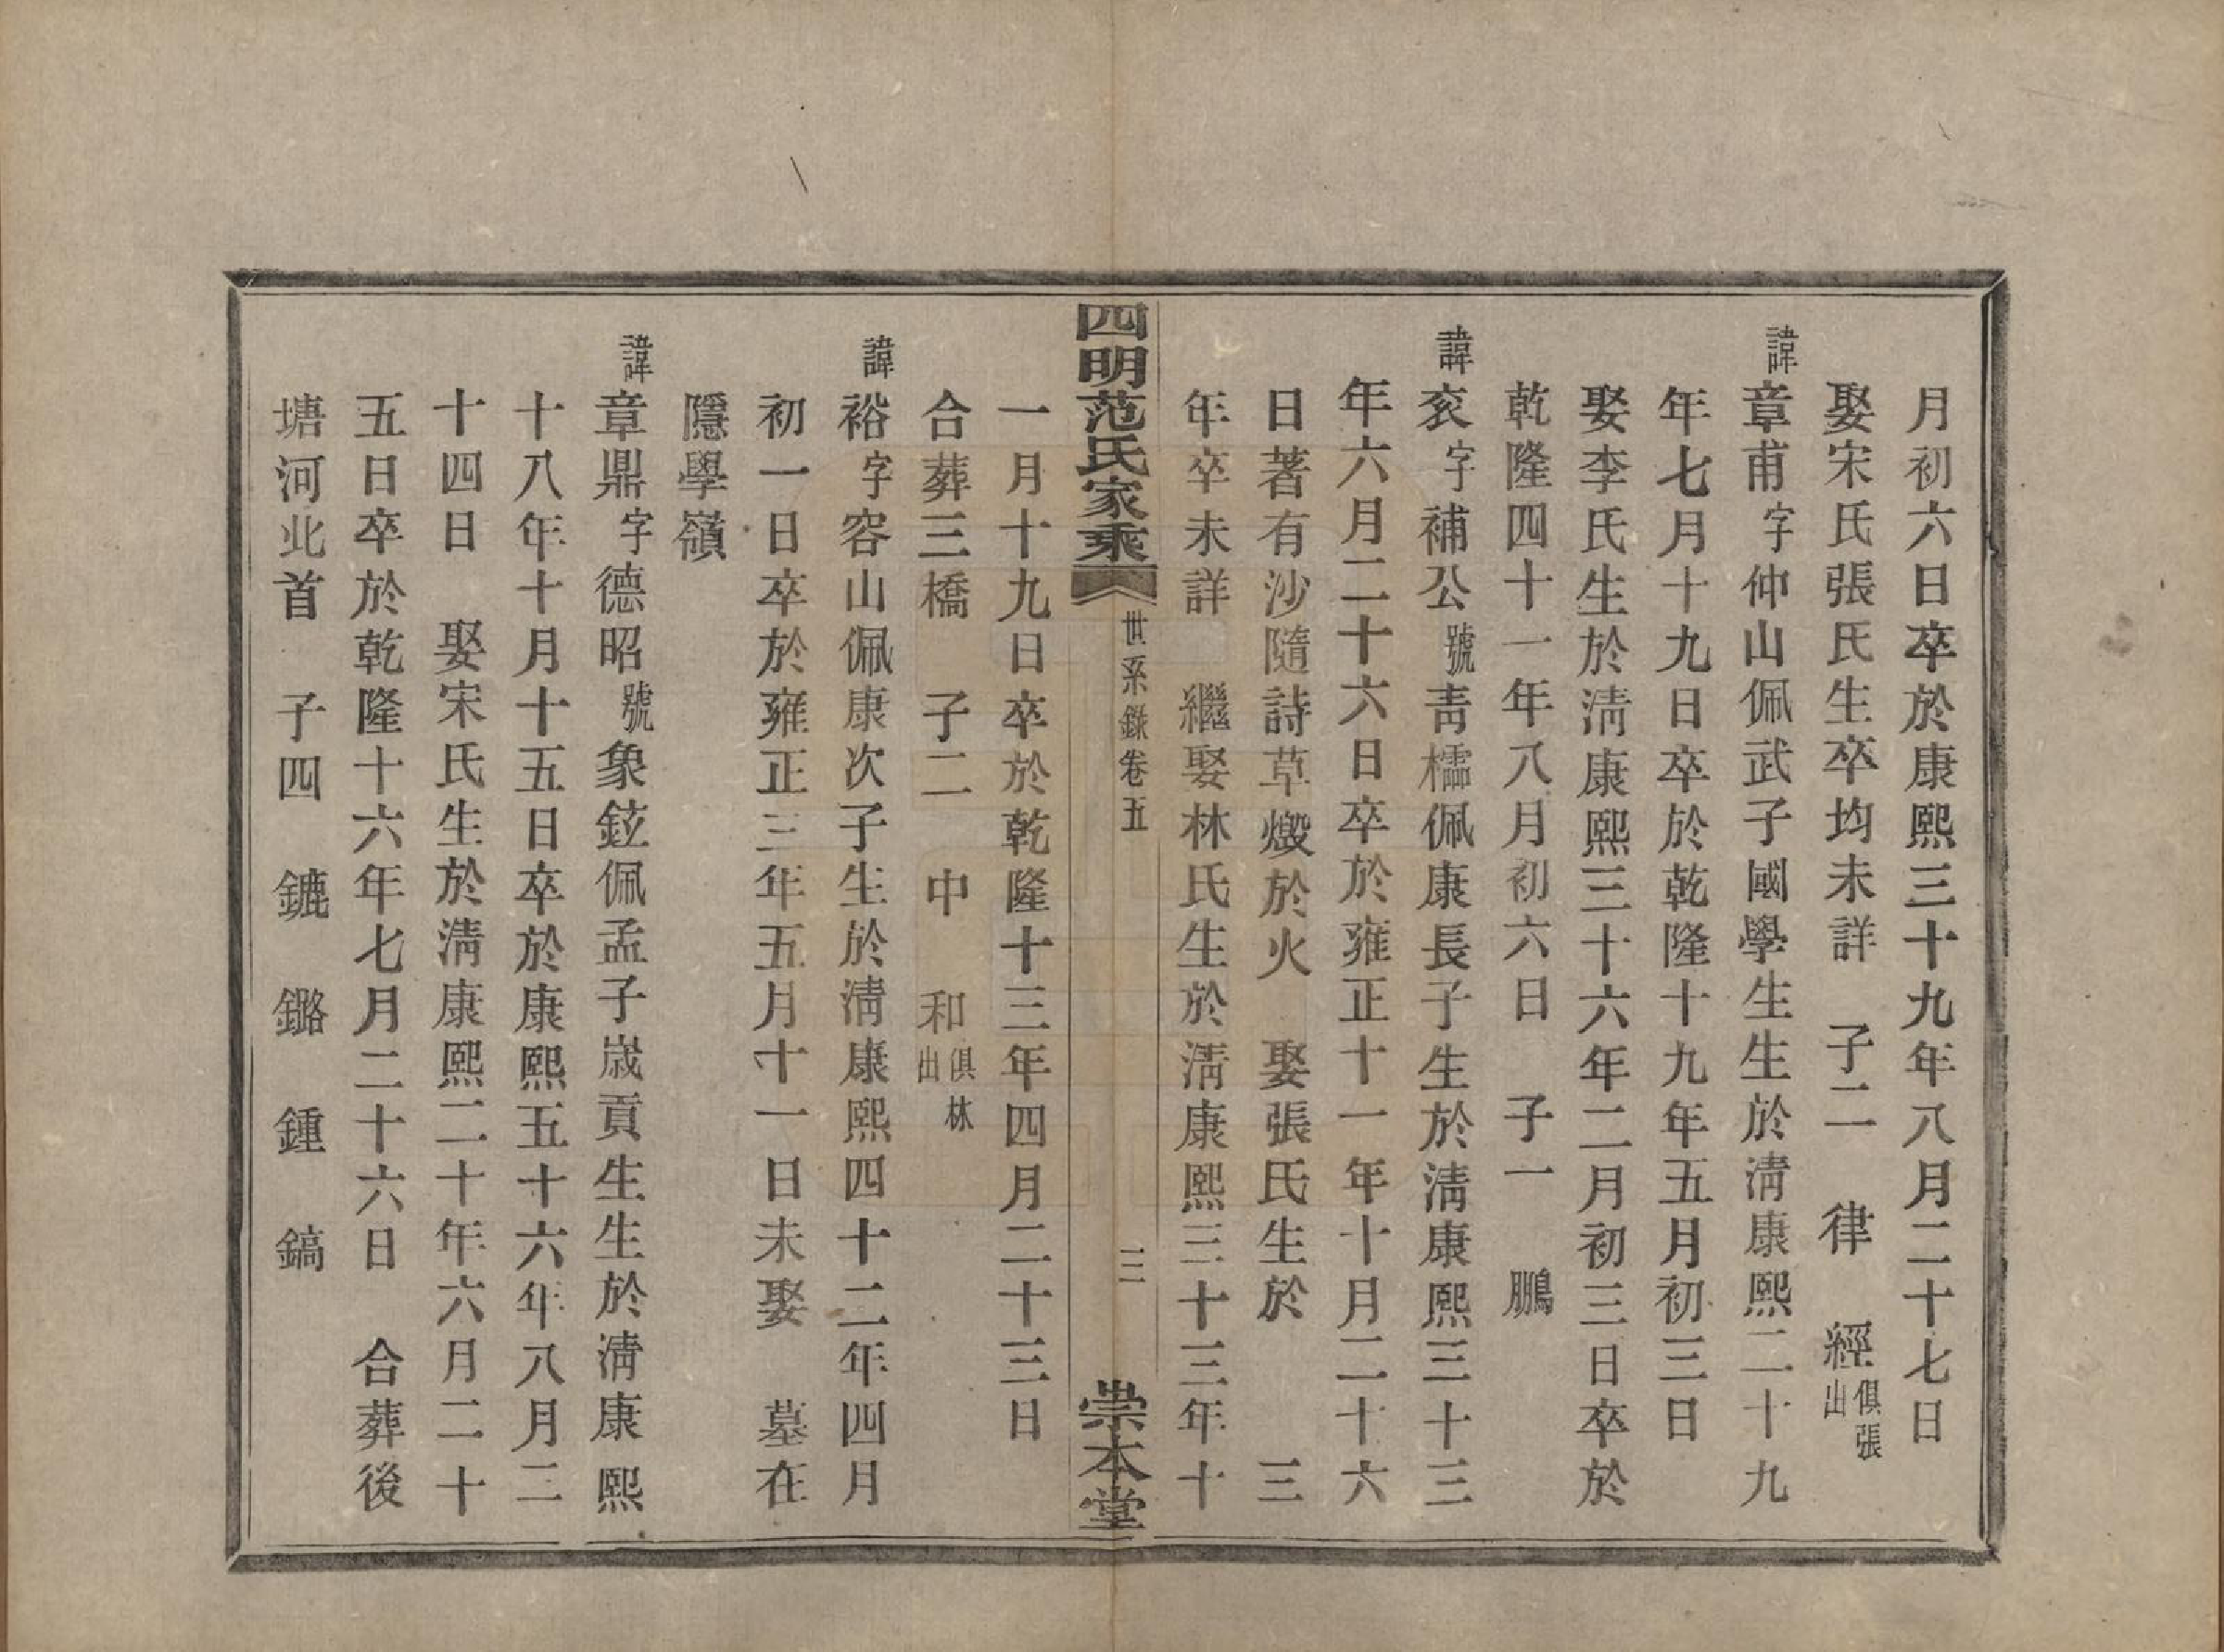 月初六日卒於康熙三十九年八月二十七日
娶宋氏張氏生卒均未詳　子二　律　經俱張出
諱章甫字仲山佩武子國學生生於淸康熙二十九
年七月十九日卒於乾隆十九年五月初三日
娶李氏生於淸康熙三十六年二月初三日卒於
乾隆四十一年八月初六日　子一　鵬
諱袞字補公號靑櫺佩康長子生於淸康熙三十三
年六月二十六日卒於雍正十一年十月二十六
日著有沙隨詩草燬於火　娶張氏生於　三
年卒未詳　繼娶林氏生於淸康熙三十三年十
四明范氏家乘　世系錄卷五　三　崇本堂
一月十九日卒於乾隆十三年四月二十三日
合葬三橋　子二　中　和俱林出
諱裕字容山佩康次子生於淸康熙四十二年四月
初一日卒於雍正三年五月十一日未娶　墓在
隱學嶺
諱章鼎字德昭號象鉉佩孟子歲貢生生於淸康熙
十八年十月十五日卒於康熙五十六年八月二
十四日　娶宋氏生於淸康熙二十年六月二十
五日卒於乾隆十六年七月二十六日　合葬後
塘河北首　子四　鏕　鏴　鍾　鎬